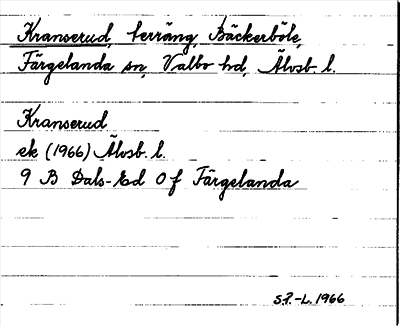 Kranserud, terräng, Bäckerböle,
Färgelanda sn, Valbo hd, Älvsb. l.
Kranserud
ek (1966) Älvsb. l.
9 B Dals-Ed 0 f Färgelanda
S.P.-L. 1966